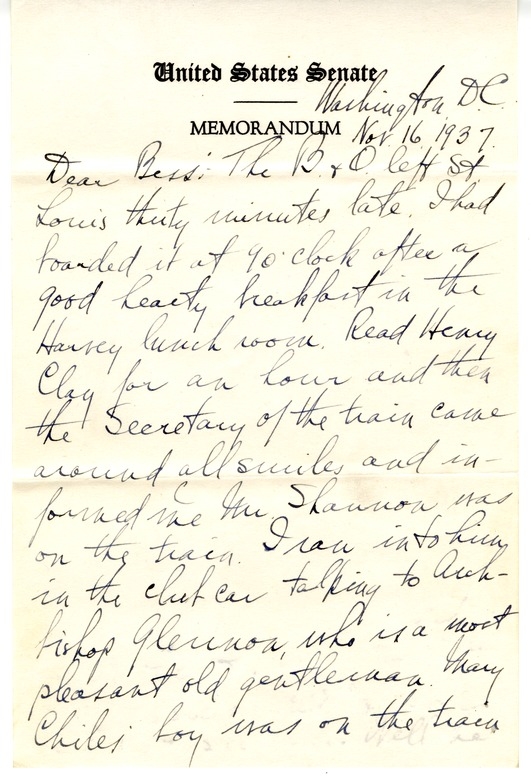 United States Senate
Washington, D.C.
MEMORANDUM
Nov. 16, 1937.
Dear Bess: The B. & O. left St.
Louis thirty minutes late. I had
boarded it at 9 o'clock after a
good hearty breakfast in the
Harvey lunch room. Read Henry
Clay for an hour and then
the Secretary of the train came
around all smiles and in-
formed me Mr. Shannon was
on the train. I ran into him
in the club car talking to Arch-
bishop Glennon, who is a most
pleasant old gentleman. Mary
Chiles' boy was on the train